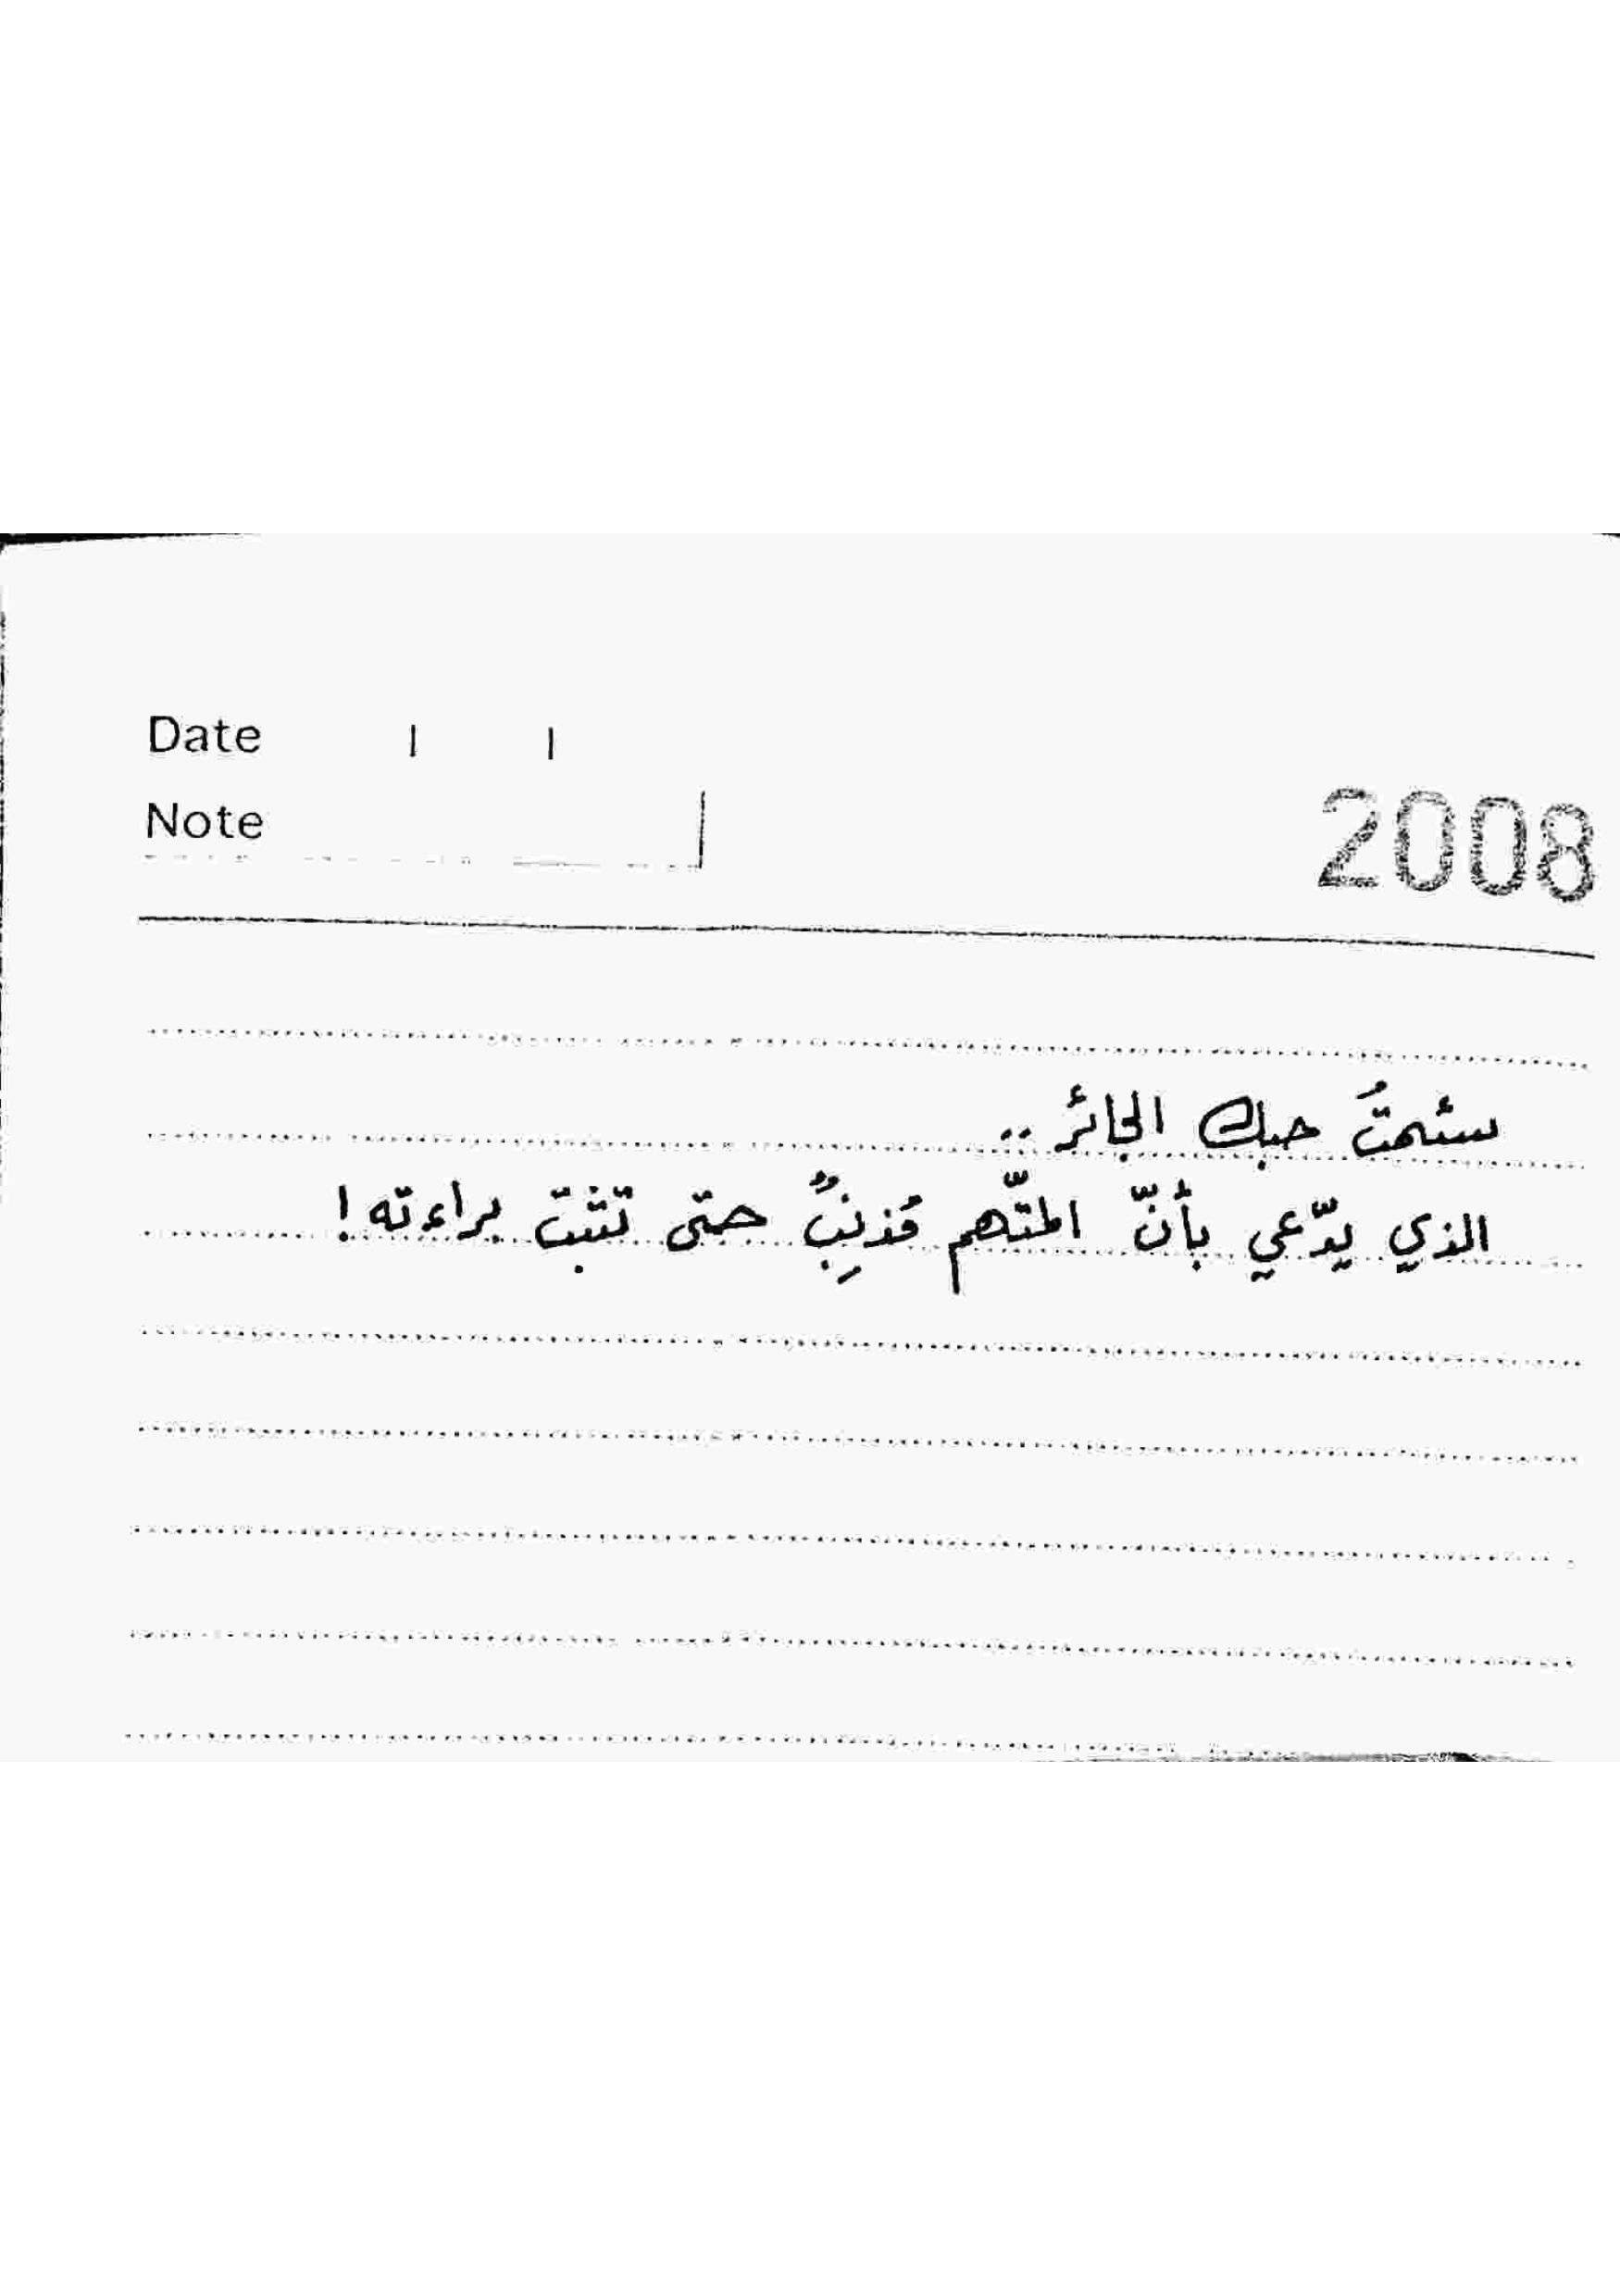 Date / /
Note
2008
سئمتُ حبك الجائر ..
الذي يدّعي بأنّ المتّهم مُذنِبٌ حتى تثبت براءته !